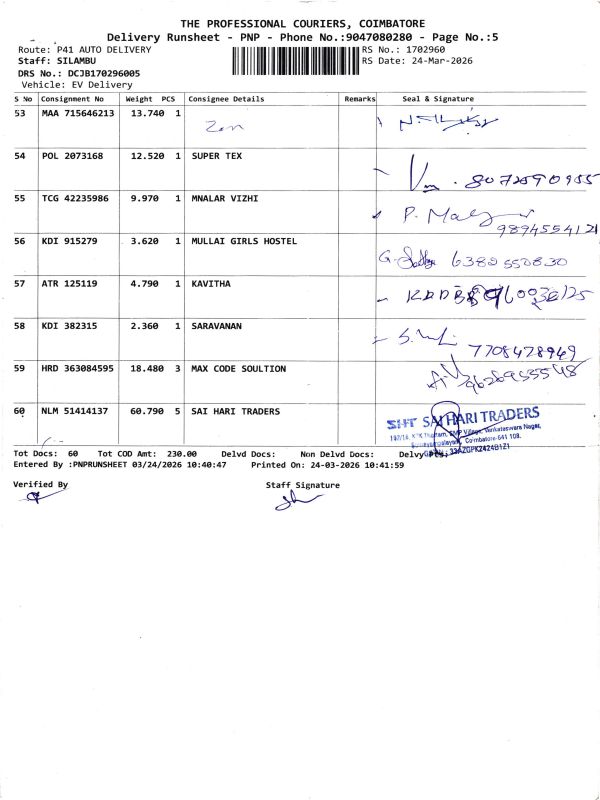 THE PROFESSIONAL COURIERS, COIMBATORE
Delivery Runsheet - PNP - Phone No.:9047080280 - Page No.:5
Route: P41 AUTO DELIVERY RS No.: 1702960
Staff: SILAMBU RS Date: 24-Mar-2026
DRS No.: DCJB170296005
Vehicle: EV Delivery
S No Consignment No Weight PCS Consignee Details Remarks Seal & Signature
53 MAA 715646213 13.740 1 Zen
54 POL 2073168 12.520 1 SUPER TEX
8072590955
55 TCG 42235986 9.970 1 MNALAR VIZHI
P.
9894554121
56 KDI 915279 3.620 1 MULLAI GIRLS HOSTEL
6382550830
57 ATR 125119 4.790 1 KAVITHA
58 KDI 382315 2.360 1 SARAVANAN
7708478949
59 HRD 363084595 18.480 3 MAX CODE SOULTION
60 NLM 51414137 60.790 5 SAI HARI TRADERS
SHT SAI HARI TRADERS
Venkateswara Nagar,
Coimbatore-641 108.
33AZGPK2424B1Z1
Tot Docs: 60 Tot COD Amt: 230.00 Delvd Docs: Non Delvd Docs: Delvy
Entered By :PNPRUNSHEET 03/24/2026 10:40:47 Printed On: 24-03-2026 10:41:59
Verified By Staff Signature